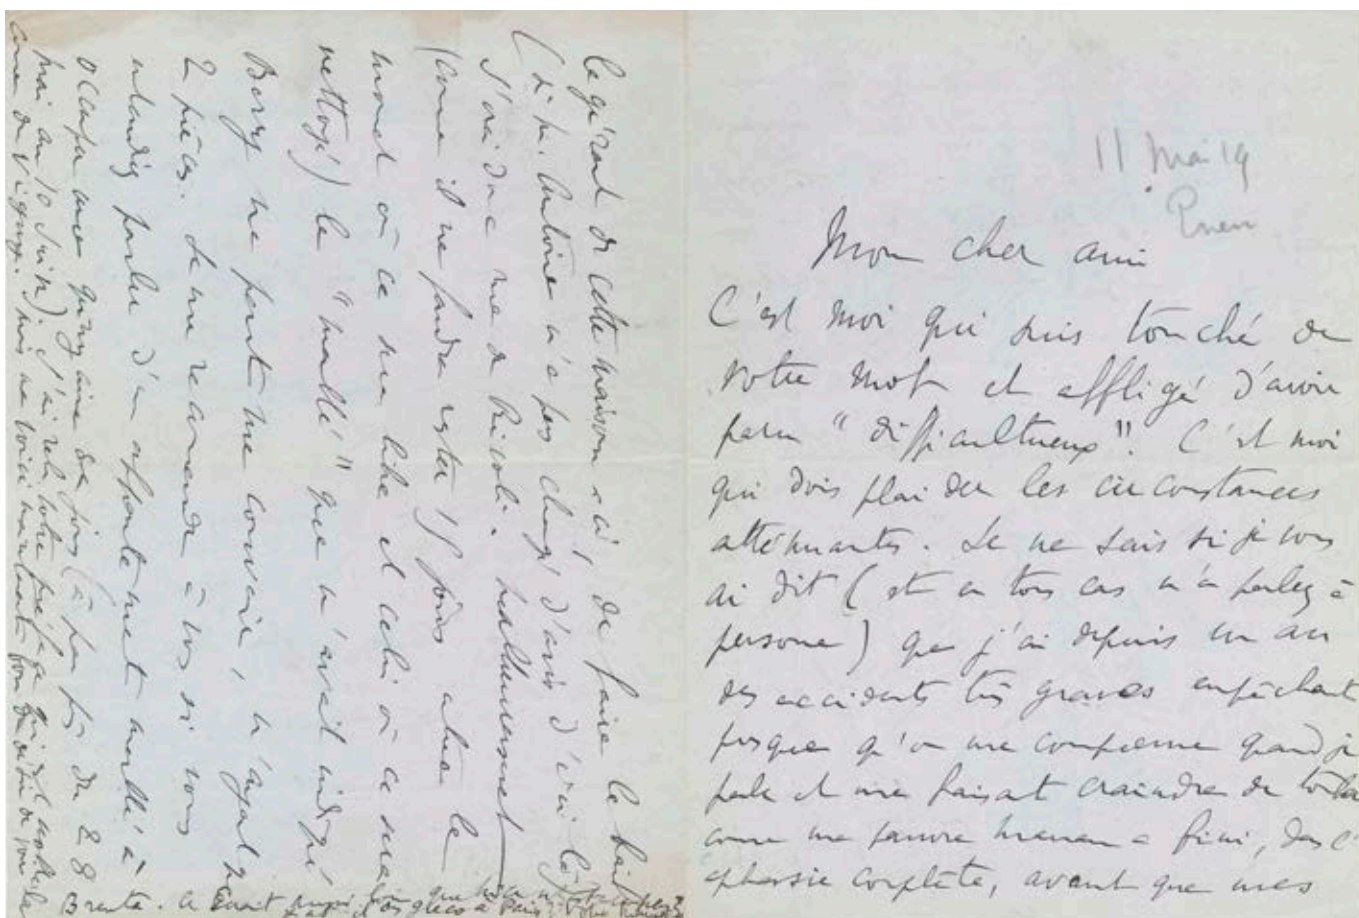 11 Mai 19
Mon cher ami
C'est moi qui suis touché de
votre mot et affligé d'avoir
paru "difficultueux". C'est moi
qui dois plaider les circonstances
atténuantes. Je ne sais si je vous
ai dit (et en tous cas n'en parlez à
personne) que j'ai depuis un an
des accidents très graves empêchant
presque qu'on me comprenne quand je
parle et me faisant craindre de
comme ma pauvre maman a fini, dans l'
aphasie complète, avant que mes
le gérant de cette maison-ci, de faire le bail
(si M. Antoine n'a pas changé d'avis d'ici là)
rue de Rivoli. Malheureusement
(comme il me faudra rester 15 jours entre le
moment où ce sera libre et celui où ce sera
nettoyé) le "meublé" que m'avait indiqué
Berry ne peut me convenir, n'ayant que
2 pièces. Je me recommande à vous si vous
entendez parler d'un appartement meublé à
occuper une quinzaine de jours (à peu près du 28
mai au 10 Juin). J'ai relu votre préface